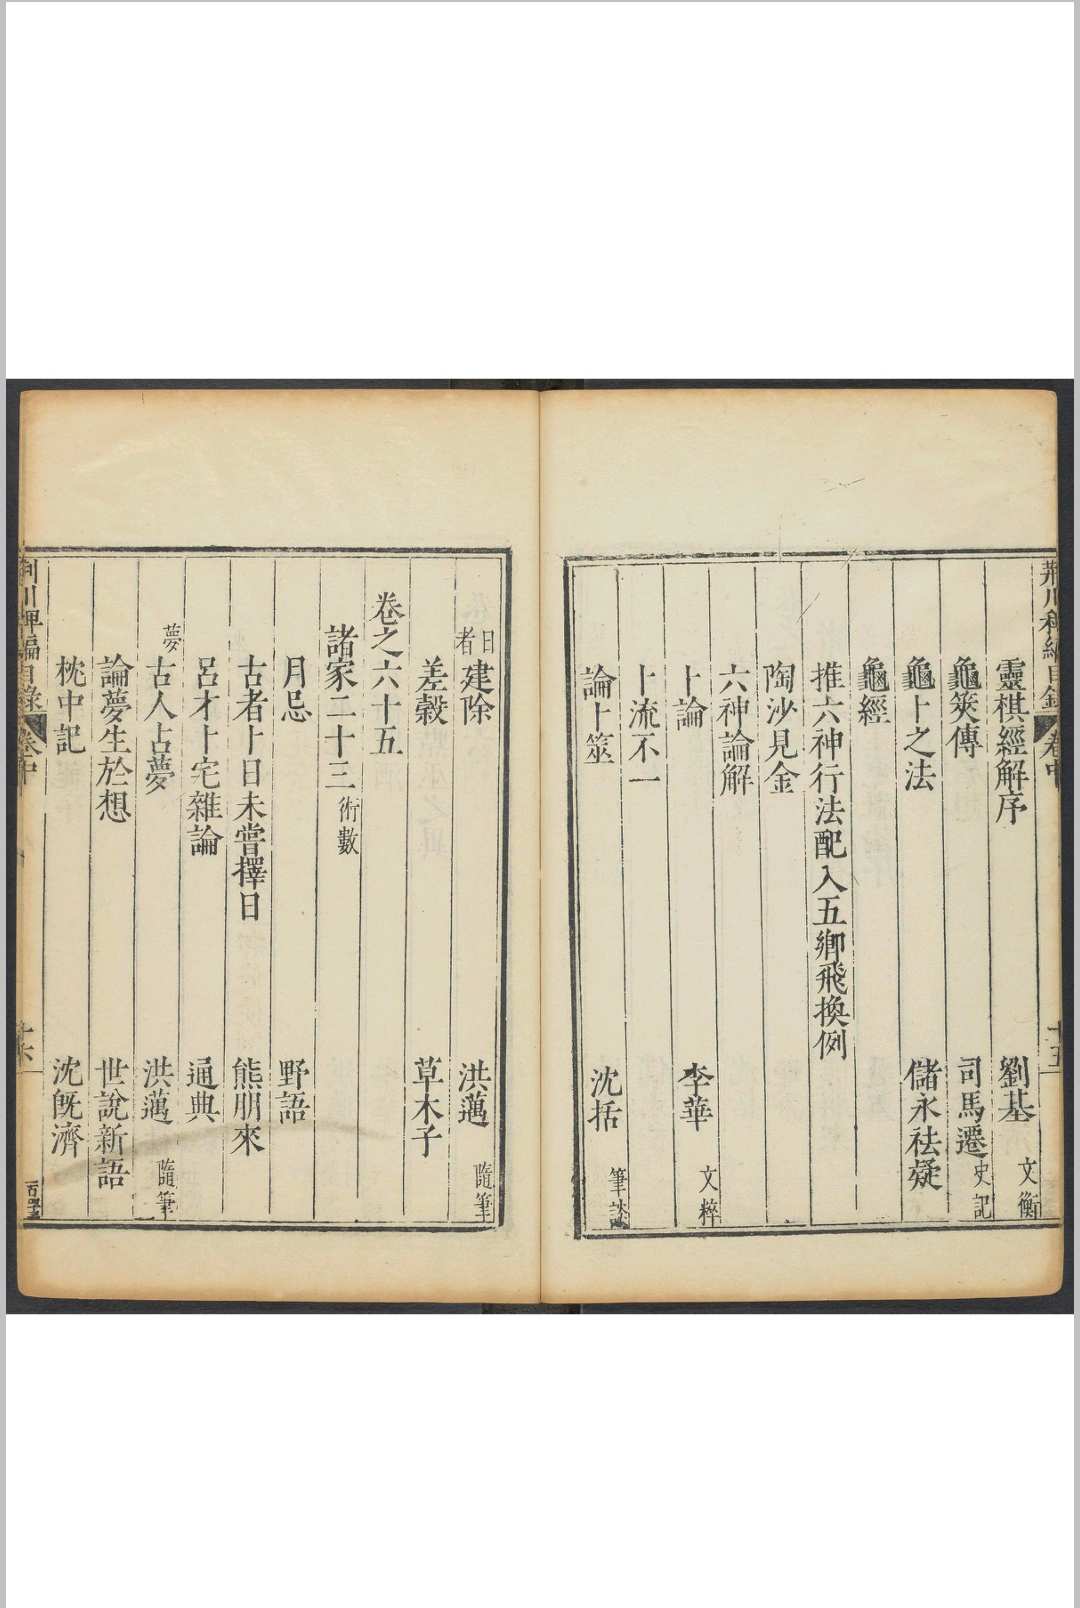 荊川稗編目錄 卷中 十五
靈棋經解序 劉基 文衡
龜筴傳 司馬遷 史記
龜卜之法 儲永祛疑
龜經
推六神行法配入五鄉飛換例
陶沙見金
六神論解
卜論 李華 文粹
卜流不一
論卜筮 沈括 筆談
日者 建除 洪邁 隨筆
差穀 草木子
卷之六十五
諸家二十三 術數
月忌 野語
古者卜日未嘗擇日 熊朋來
呂才卜宅雜論 通典
夢 古人占夢 洪邁 隨筆
論夢生於想 世說新語
枕中記 沈旣濟
荊川稗編目錄 卷中 十六